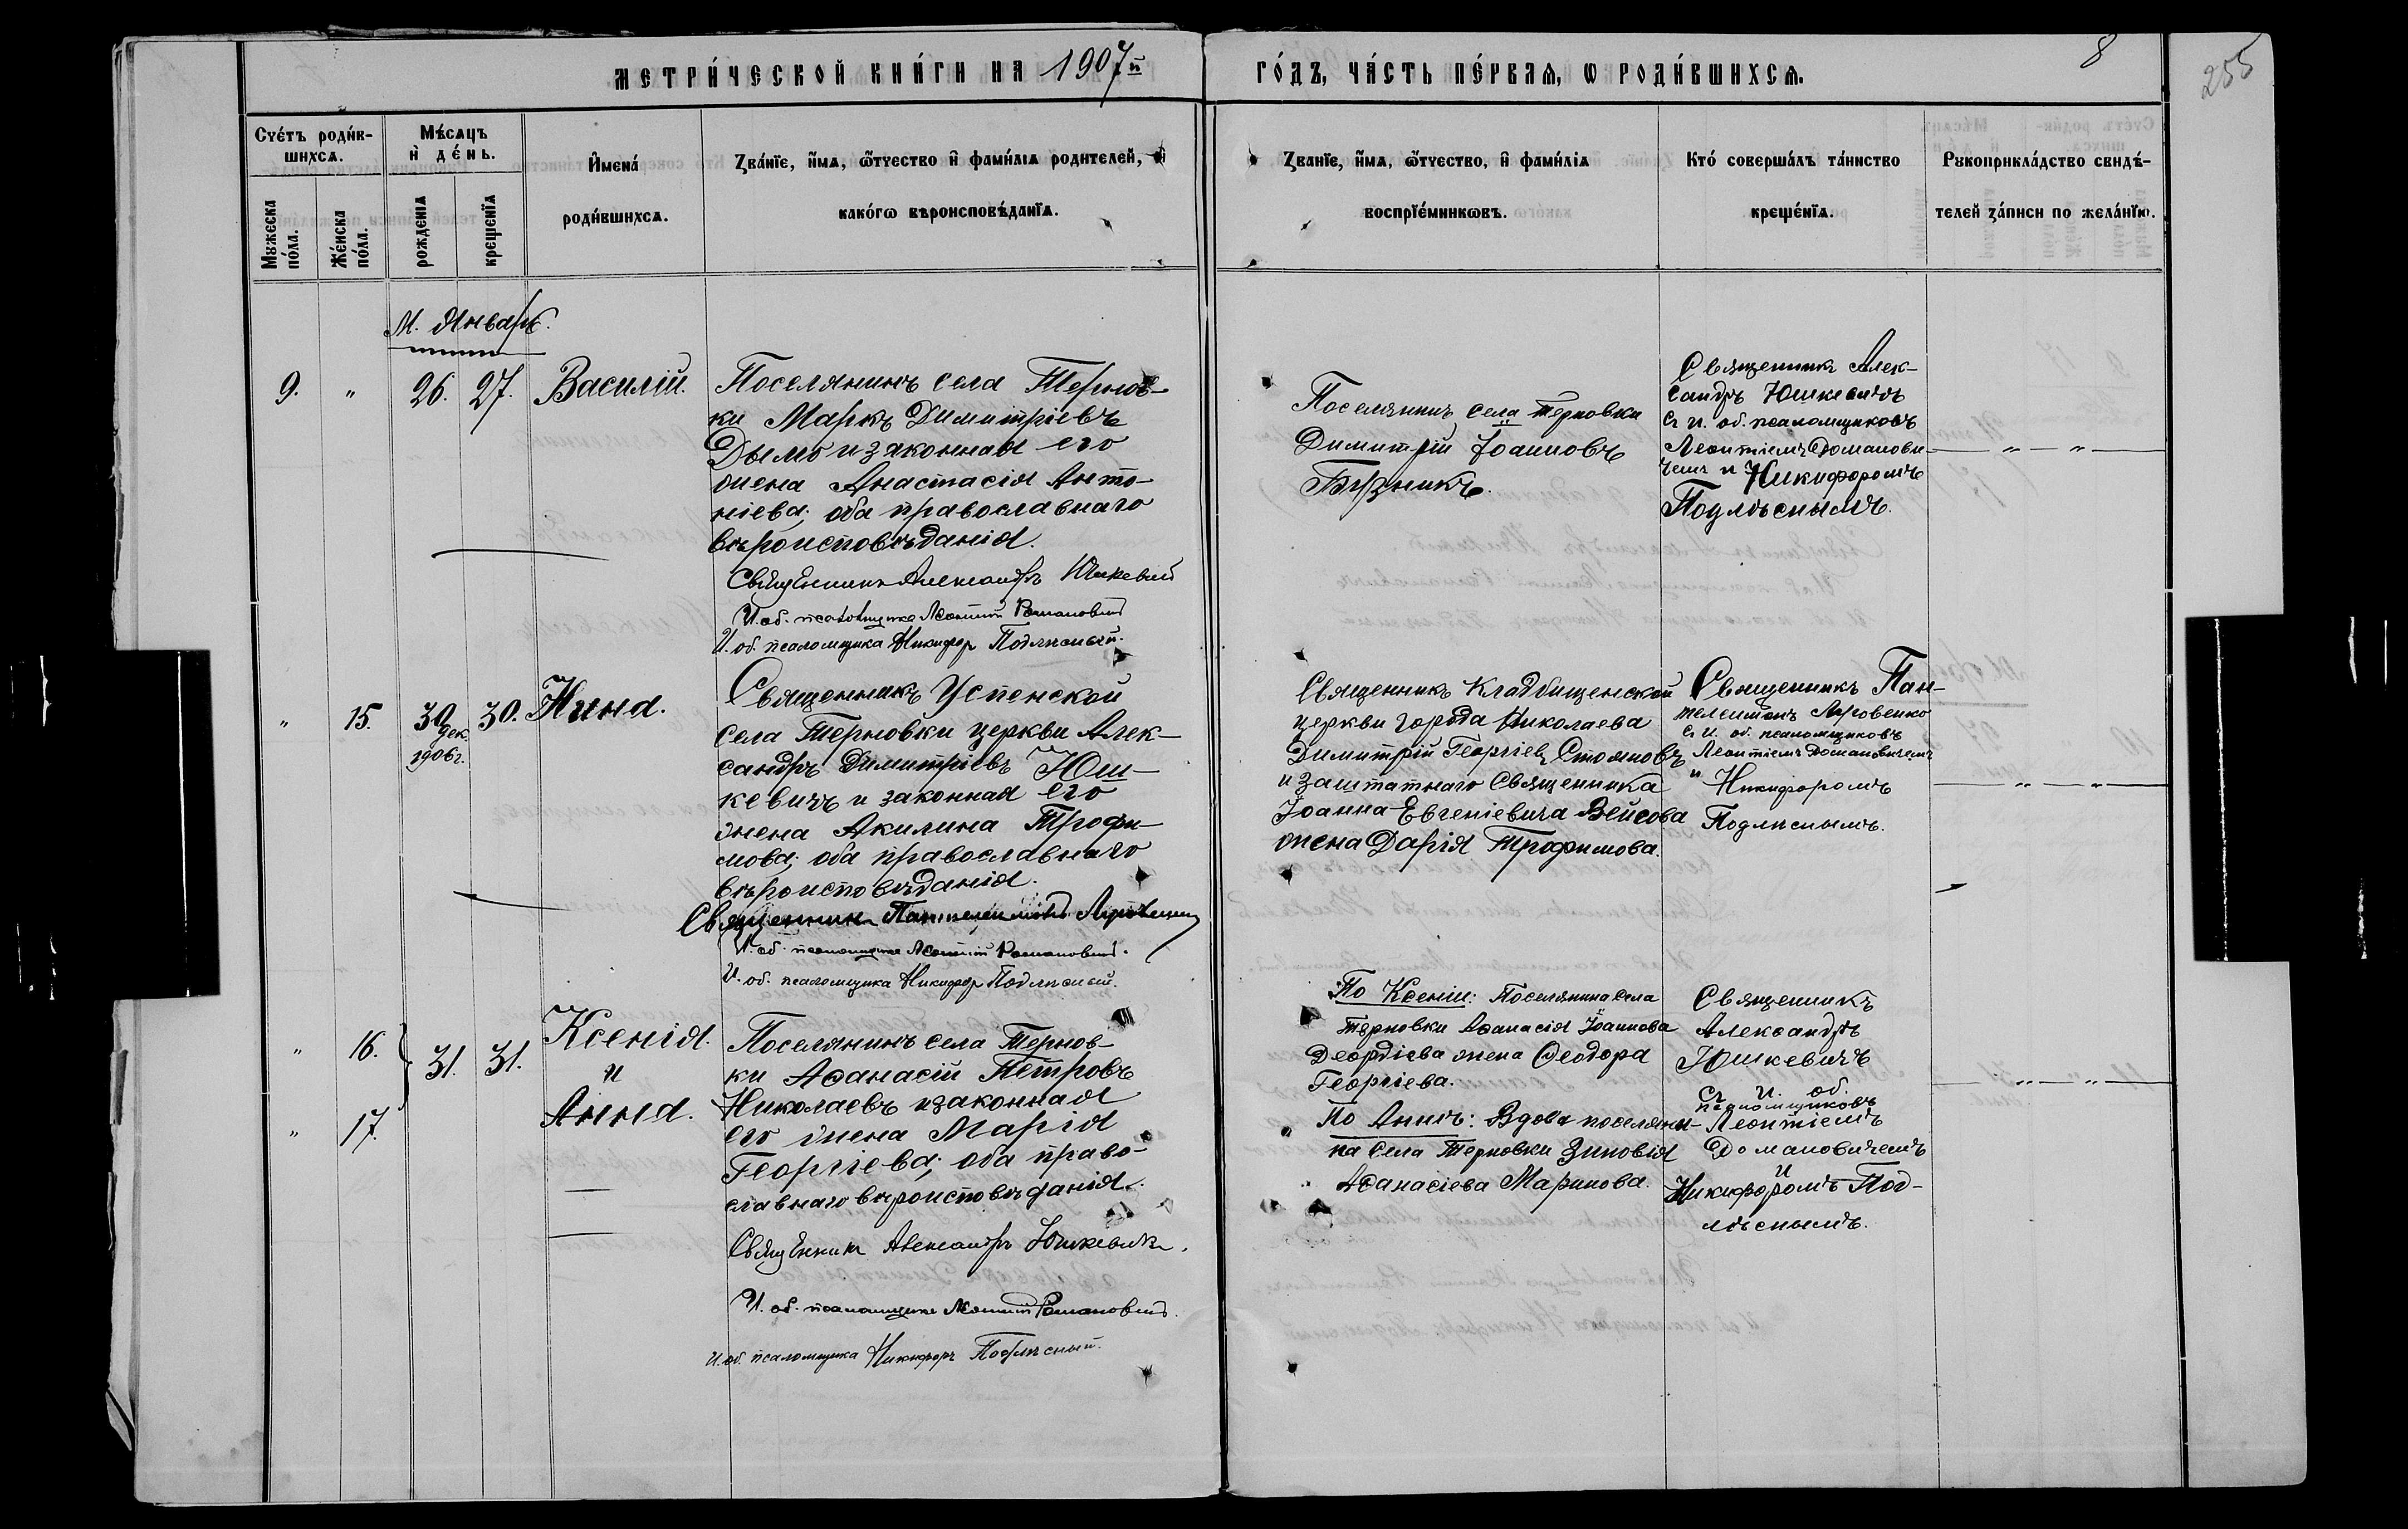 МЕТРИ́ЧЕСКОЙ КНИ́ГИ НА 1907й
ГО́ДЪ, ЧА́СТЬ ПЕ́РВАѦ, Ѡ РОДИ́ВШИХСѦ.
8
255
Счéтъ роди́в-
шихсѧ.
Мѣ́сѧцъ
и҆ де́нь.
Мужеска
по́ла.
Же́нска
по́ла.
рожденїѧ
крещенїѧ
И҆мена́
роди́вшихсѧ.
Зва́нїе, и҆́мѧ, ѻ҆́тчество и҆ фами́лїѧ родителей, и҆
како́гѡ вѣроисповѣ́данїѧ.
Зва́нїе, и҆́мѧ, ѻ҆́тчество, и҆ фами́лїѧ
воспрїе́мниковъ.
Кто́ соверша́лъ та́инство
креще́нїѧ.
Рукоприкла́дство свидѣ́-
телей за́писи по жела́нїю.
М. Январь.
9. " 26. 27. Василій.
Поселянинъ села Тернов-
ки Маркъ Димитріевъ
Дымо и законная его
жена Анастасія Анто-
ніева; оба православнаго
вѣроисповѣданія.
Священникъ Александръ Юшкевичъ
И. об. псаломщика Леонтій Домановичъ
И. об. псаломщика Никифоръ Подлѣсный.
Поселянинъ села Терновки
Димитрій Іоанновъ
Бузникъ.
Священникъ Алек-
сандръ Юшкевичъ
съ и. об. псаломщиковъ
Леонтіемъ Домановичемъ
и Никифоромъ
Подлѣснымъ.
" "
" 15. 30 дек. 1906 г. 30. Нина.
Священникъ Успенской
села Терновки церкви Алек-
сандръ Димитріевъ Юш-
кевичъ и законная его
жена Акилина Трофи-
мова; оба православнаго
вѣроисповѣданія.
Священникъ Пантелеимонъ
И. об. псаломщика Леонтій Домановичъ.
И. об. псаломщика Никифоръ Подлѣсный.
Священникъ Кладбищенской
церкви города Николаева
Димитрій Георгіевъ Стояновъ
и заштатнаго священника
Іоанна Евгеніевича Вейсова
жена Дарія Трофимова.
Священникъ Пан-
телеимонъ
съ и. об. псаломщиковъ
Леонтіемъ Домановичемъ
и Никифоромъ
Подлѣснымъ.
" "
" 16. 31. 31. Ксенія.
и
" 17. Анна.
Поселянинъ села Тернов-
ки Аѳанасій Петровъ
Николаевъ и законная
его жена Марія
Георгіева; оба право-
славнаго вѣроисповѣданія.
Священникъ Александръ Юшкевичъ.
И. об. псаломщика Леонтій Домановичъ.
И. об. псаломщика Никифоръ Подлѣсный.
По Ксеніи: Поселянина села
Терновки Аѳанасія Іоаннова
Деордіева жена Ѳеодора
Георгіева.
По Аннѣ: Вдова поселяни-
на села Терновки Зиновія
Аѳанасіева Маринова.
Священникъ
Александръ
Юшкевичъ
съ и. об.
псаломщиковъ
Леонтіемъ
Домановичемъ
и
Никифоромъ Под-
лѣснымъ.
" "